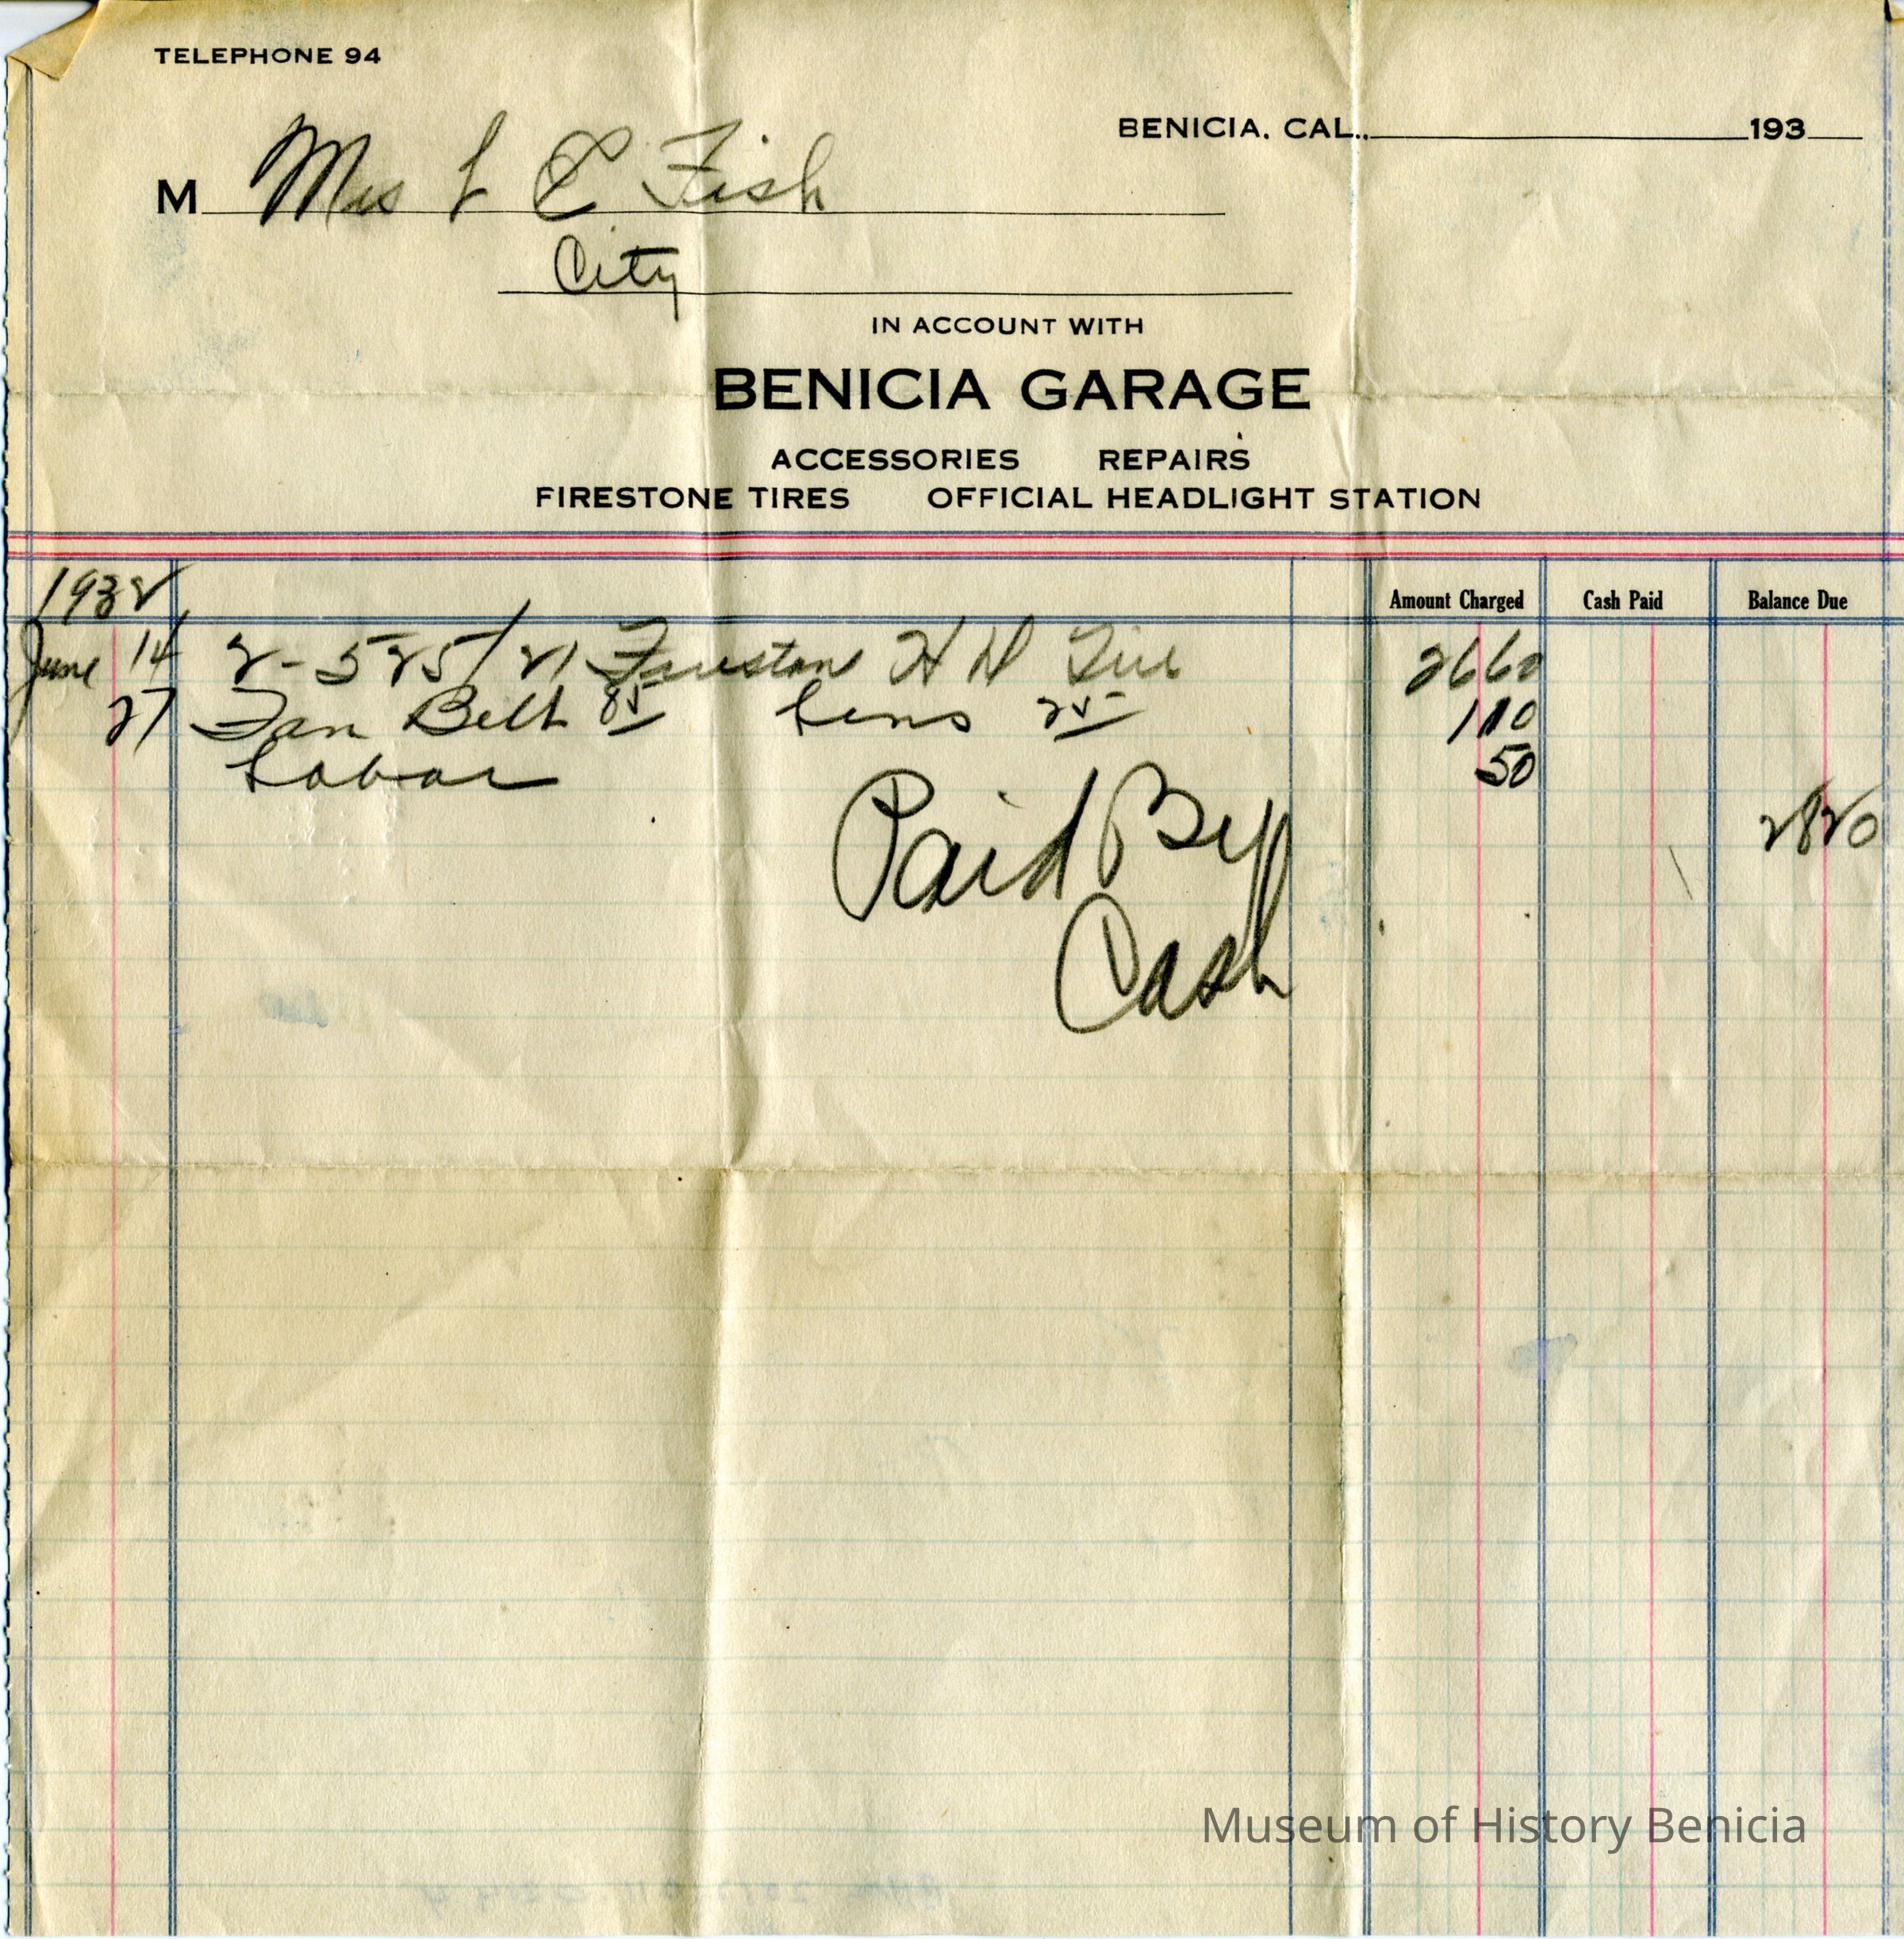 TELEPHONE 94
BENICIA, CAL., 193
M Mrs L E Fish
City
IN ACCOUNT WITH
BENICIA GARAGE
ACCESSORIES REPAIRS
FIRESTONE TIRES OFFICIAL HEADLIGHT STATION
1932 Amount Charged Cash Paid Balance Due
June 14 2-525/21 Firestone H D Tire 2660
27 Fan Belt 85 Lens 25 110
Labor 50
2820
Paid By
Cash
Museum of History Benicia